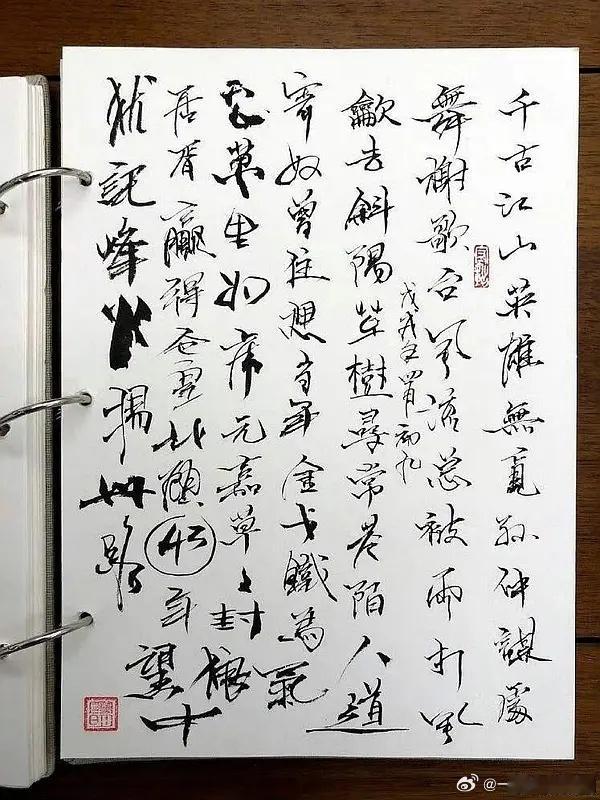 千古江山英雄無覓孙仲謀處
舞榭歌台风流总被雨打风
龡去斜陽草樹尋常巷陌人道
戊戌初九
寄奴曾住想當年金戈鐵馬氣
吞萬里如虎元嘉草々封狼
居胥贏得仓皇北顧43年望中
犹記峰火揚州路
@一